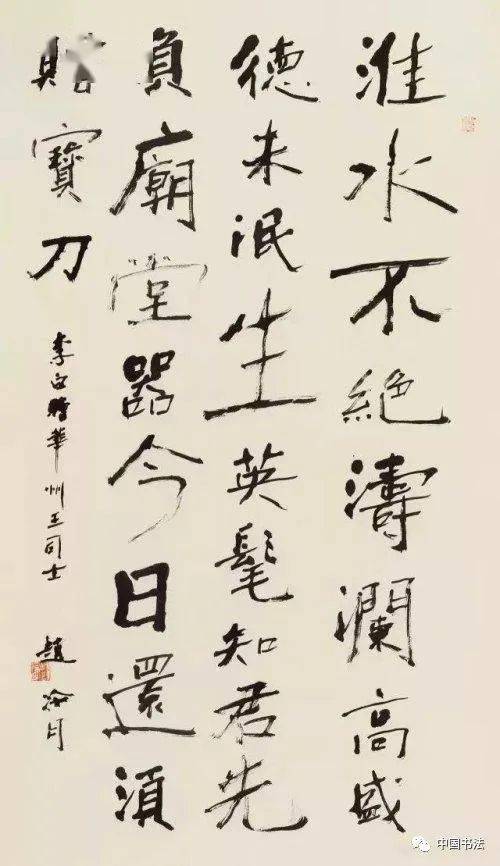 淮水不絶濤瀾高盛
德未泯生英髦知君先
負廟堂器今日還須
贈寶刀
李白贈華州王司士
趙冷月
中国书法